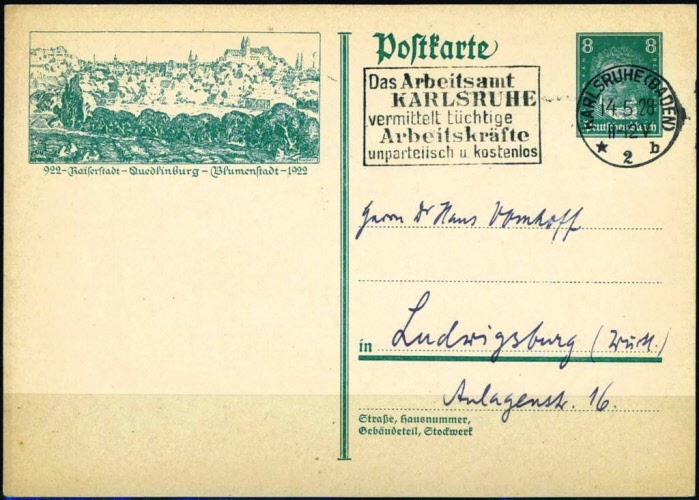 922-Kaiserstadt-Quedlinburg-Blumenstadt-1922
Postkarte
Das Arbeitsamt
KARLSRUHE
vermittelt tüchtige
Arbeitskräfte
unparteiisch u. kostenlos
8 8
Deutsches Reich
KARLSRUHE (BADEN)
14.5.28
★ 2 b
Herrn Dr Hans
in Ludwigsburg (Württ.)
Anlagenstr. 16.
Straße, Hausnummer,
Gebäudeteil, Stockwerk